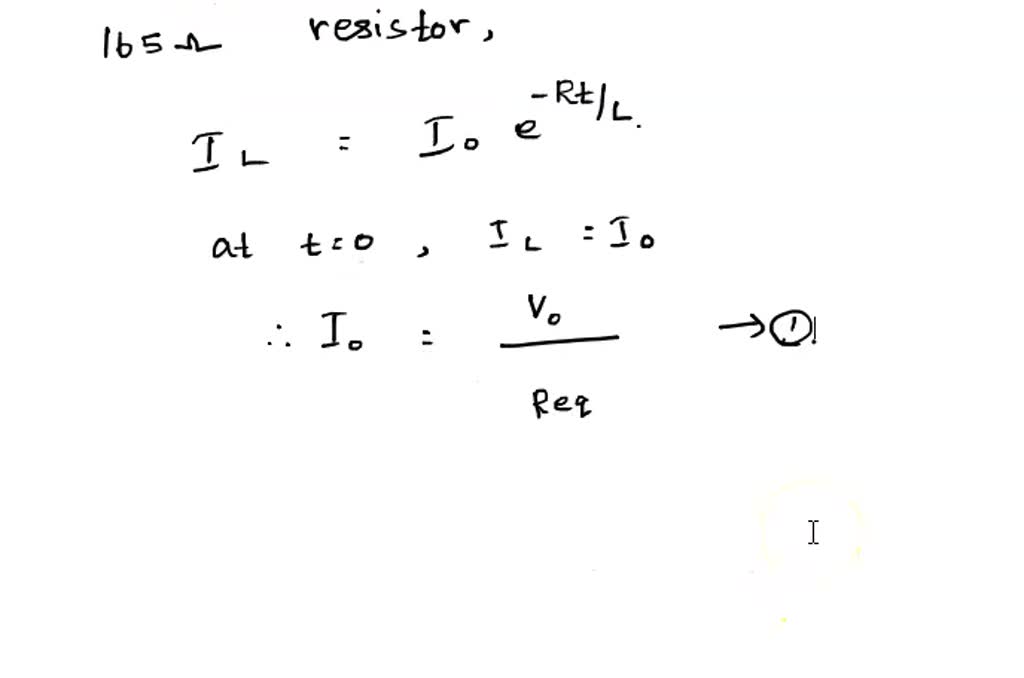 165 Ω resistor,
I_L = I_0 e^{-Rt/L}.
at t=0, I_L = I_0
∴ I_0 = V_0 / Req → ①